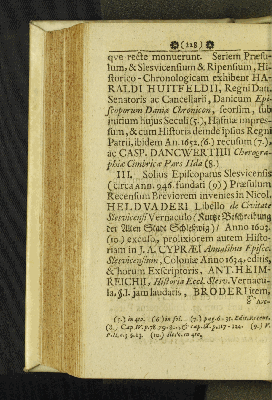 (228)
qve recte monuerunt. Seriem Præsu-
lum, & Slesvicensium & Ripensium, Hi-
storico-Chronologicam exhibent HA-
RALDI HUITFELDII, Regni Dan.
Senatoris ac Cancellarii, Danicum Epi-
scoporum Daniæ Chronicon, seorsim, sub
initium hujus Seculi (5.), Hafniæ impres-
sum, & cum Historia deinde ipsius Regni
Patrii, ibidem An. 1652. (6.) recusum (7.),
ac CASP. DANCWERTHII Chorogra-
phiæ Cimbricæ Pars IIda (8.)
III. Solius Episcopatus Slesvicensis
(circa Ann. 946. fundati (9.) ) Præsulum
Recensum Breviorem invenies in Nicol.
HELDVADERI Libello de Civitate
Slesvicensi Vernaculo / Kurtze Beschreibung
der Alten Stadt Schleßwig / Anno 1603.
(10.) excuso, prolixiorem autem Histo-
riam in J. A. CYPRÆI Annalibus Episc.
Slesvicensium, Coloniæ Anno 1634. editis,
& horum Exscriptoris, ANT. HEIM-
REICHII, Historia Eccl. Slesv. Vernacu-
la, §. I. jam laudatis, BRODERI item,
(5.) in 4to. (6.) in fol. (7.) pag. 6-35. Edit. recent.